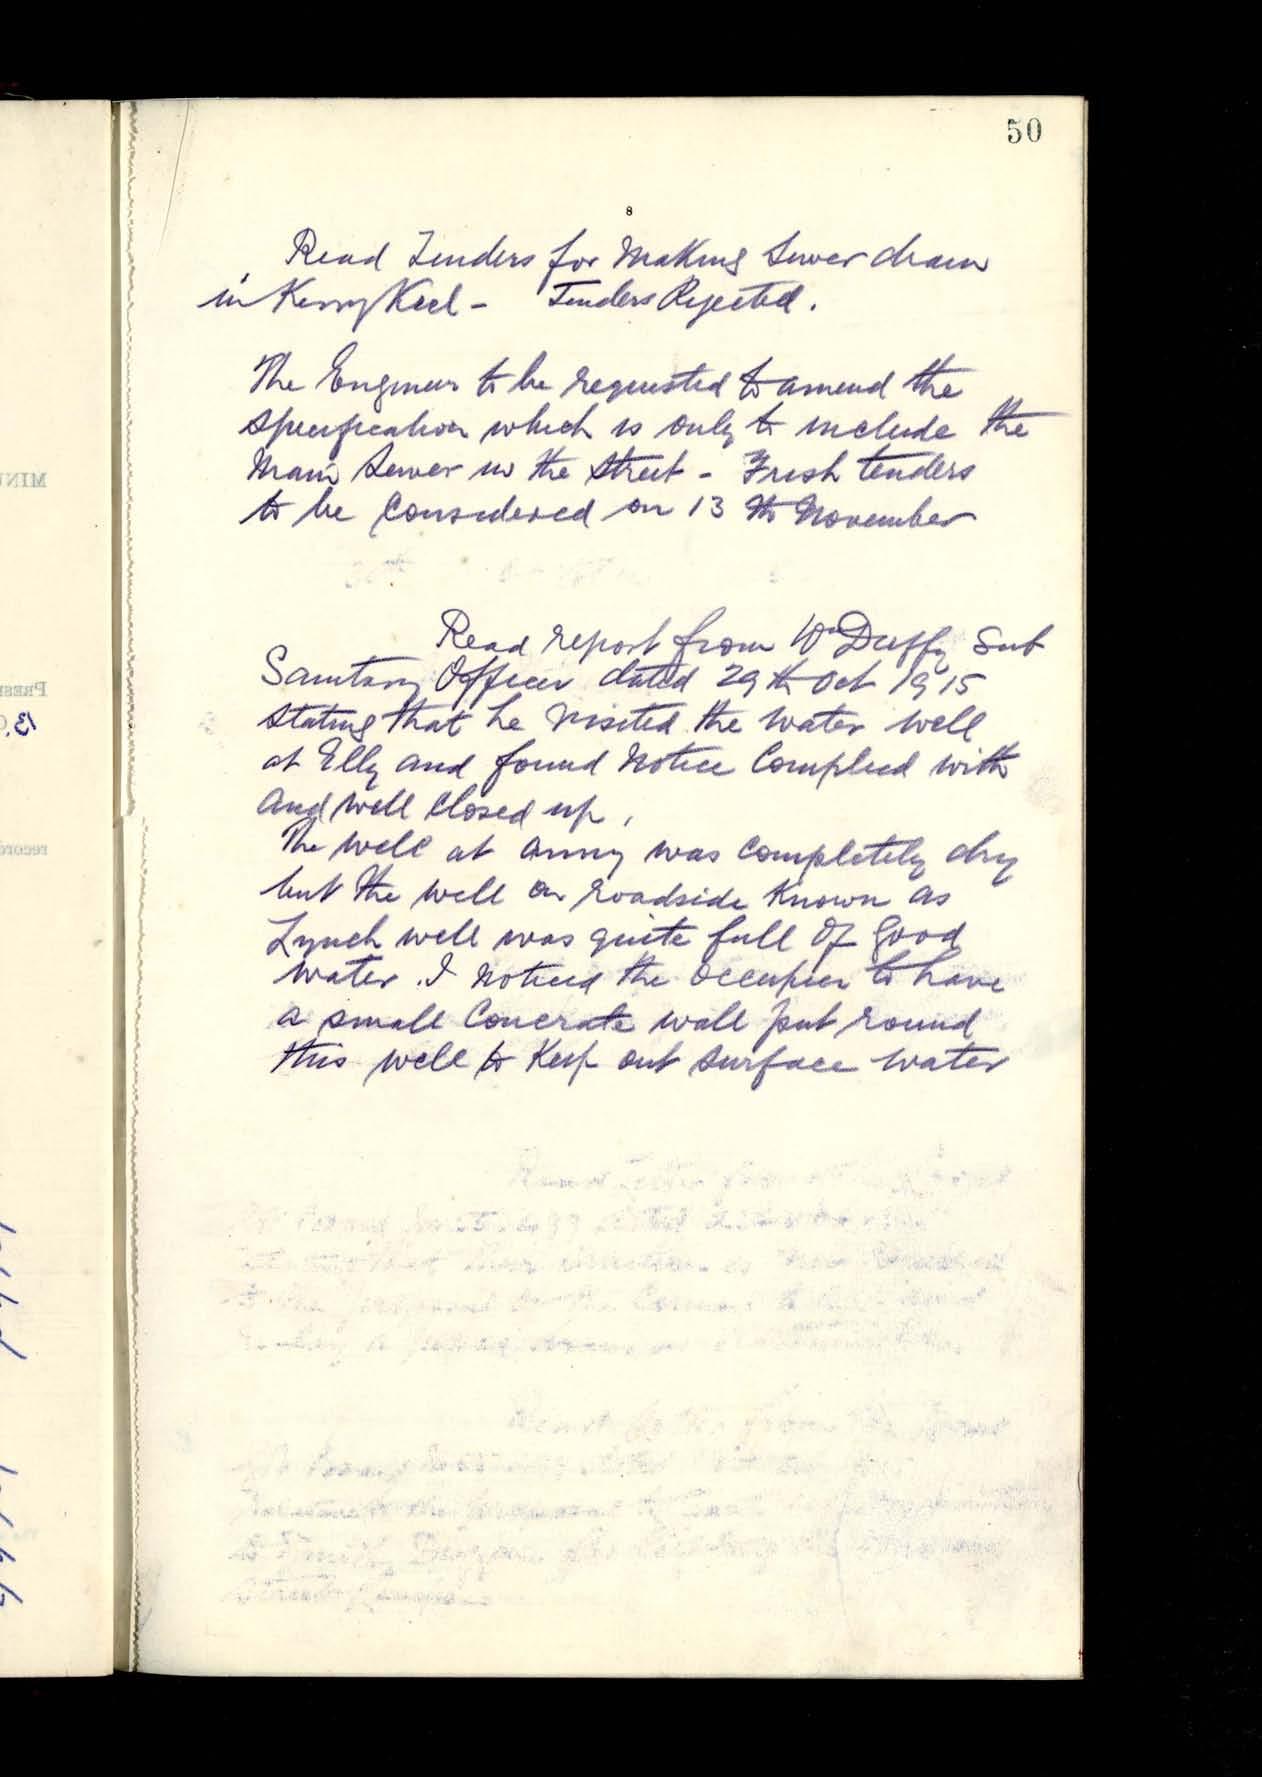 50
8
Read Tenders for Making Sewer drain
in Kerrykeel - Tenders Rejected.
The Engineer to be requested to amend the
specification which is only to include the
Main Sewer in the Street - Fresh tenders
to be Considered on 13th November
Read report from Wm Duffy Sub
Sanitary Officer dated 29th Oct 1915
stating that he visited the water well
at Elly and found Notice Complied with
and well closed up.
The well at was completely dry
but the well on roadside Known as
Lynch well was quite full of Good
water. I noticed the occupier to have
a small Concrate wall put round
this well to Keep out surface water
MINU
PRESE
13.
record